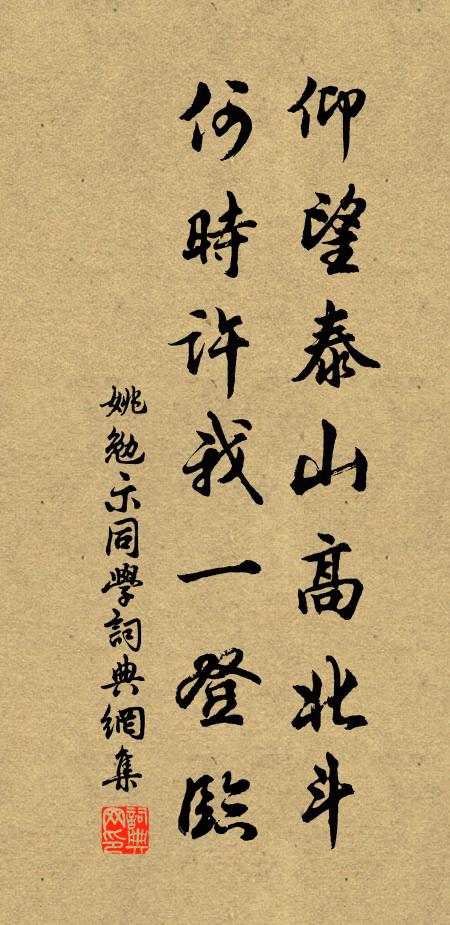 仰望泰山高北斗
何時許我一登臨
姚勉示同學詞典網集
詞典网印